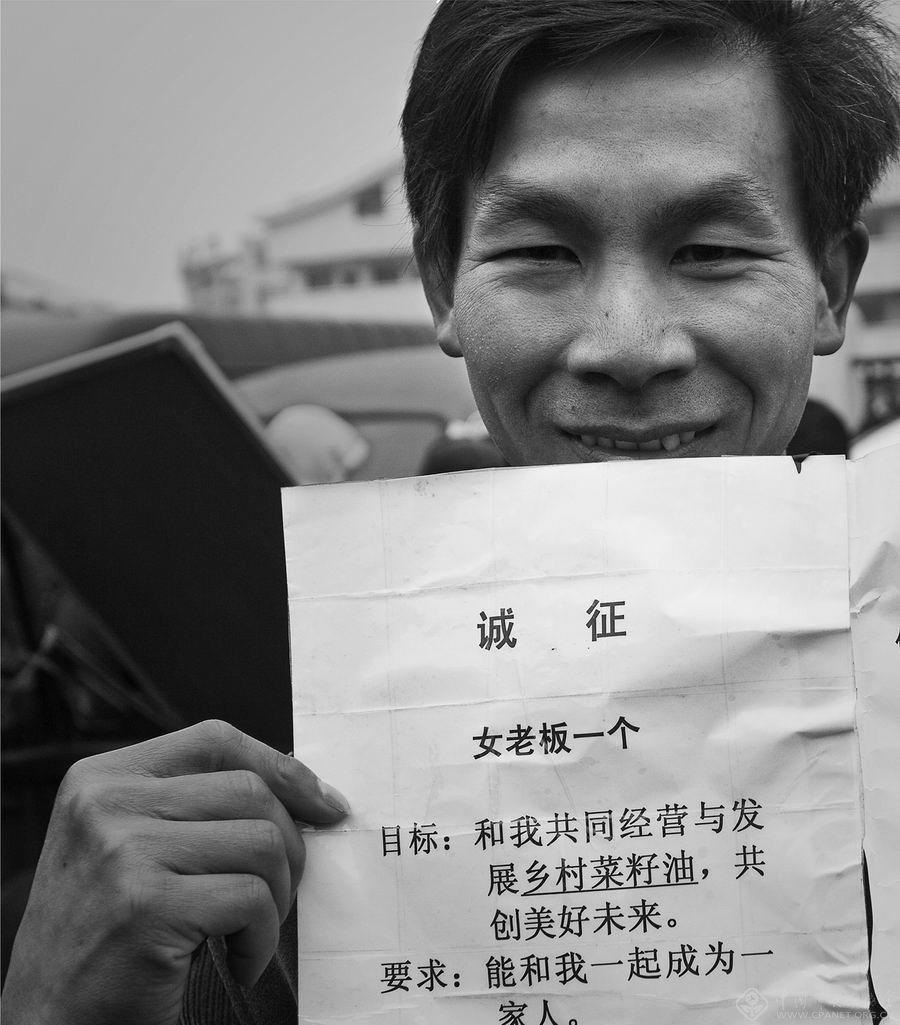 诚 征
女老板一个
目标：和我共同经营与发
展乡村菜籽油，共
创美好未来。
要求：能和我一起成为一
家人。
WWW.CPANET.ORG.CN